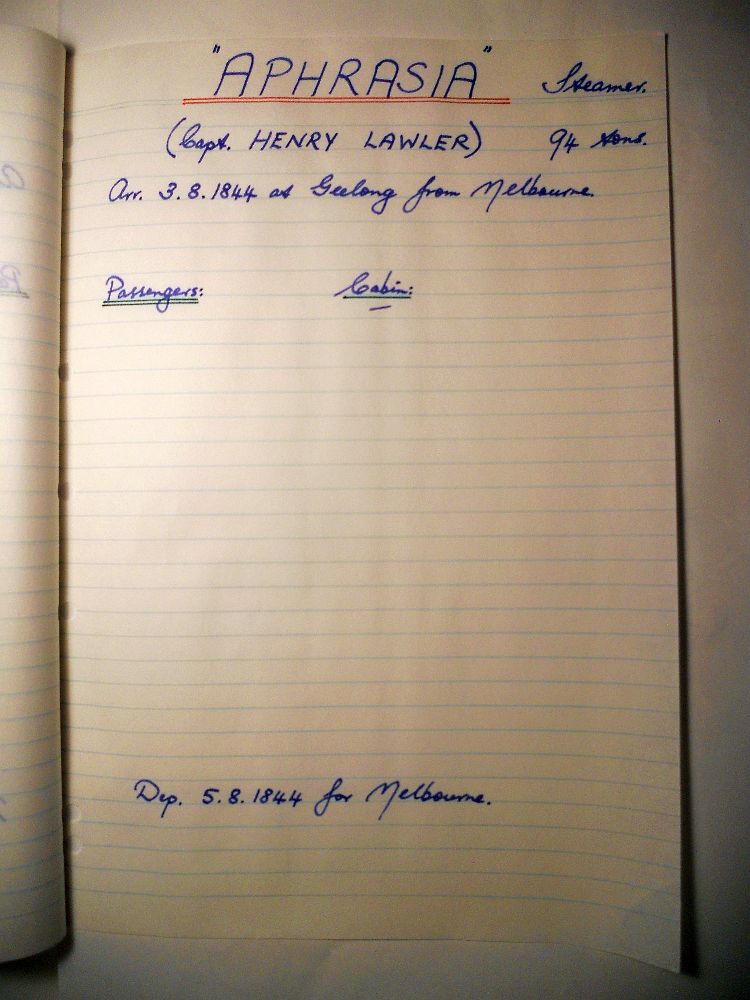 "APHRASIA" Steamer.
(Capt. HENRY LAWLER) 94 tons.
Arr. 3.8.1844 at Geelong from Melbourne.
Passengers: Cabin:
—
Dep. 5.8.1844 for Melbourne.